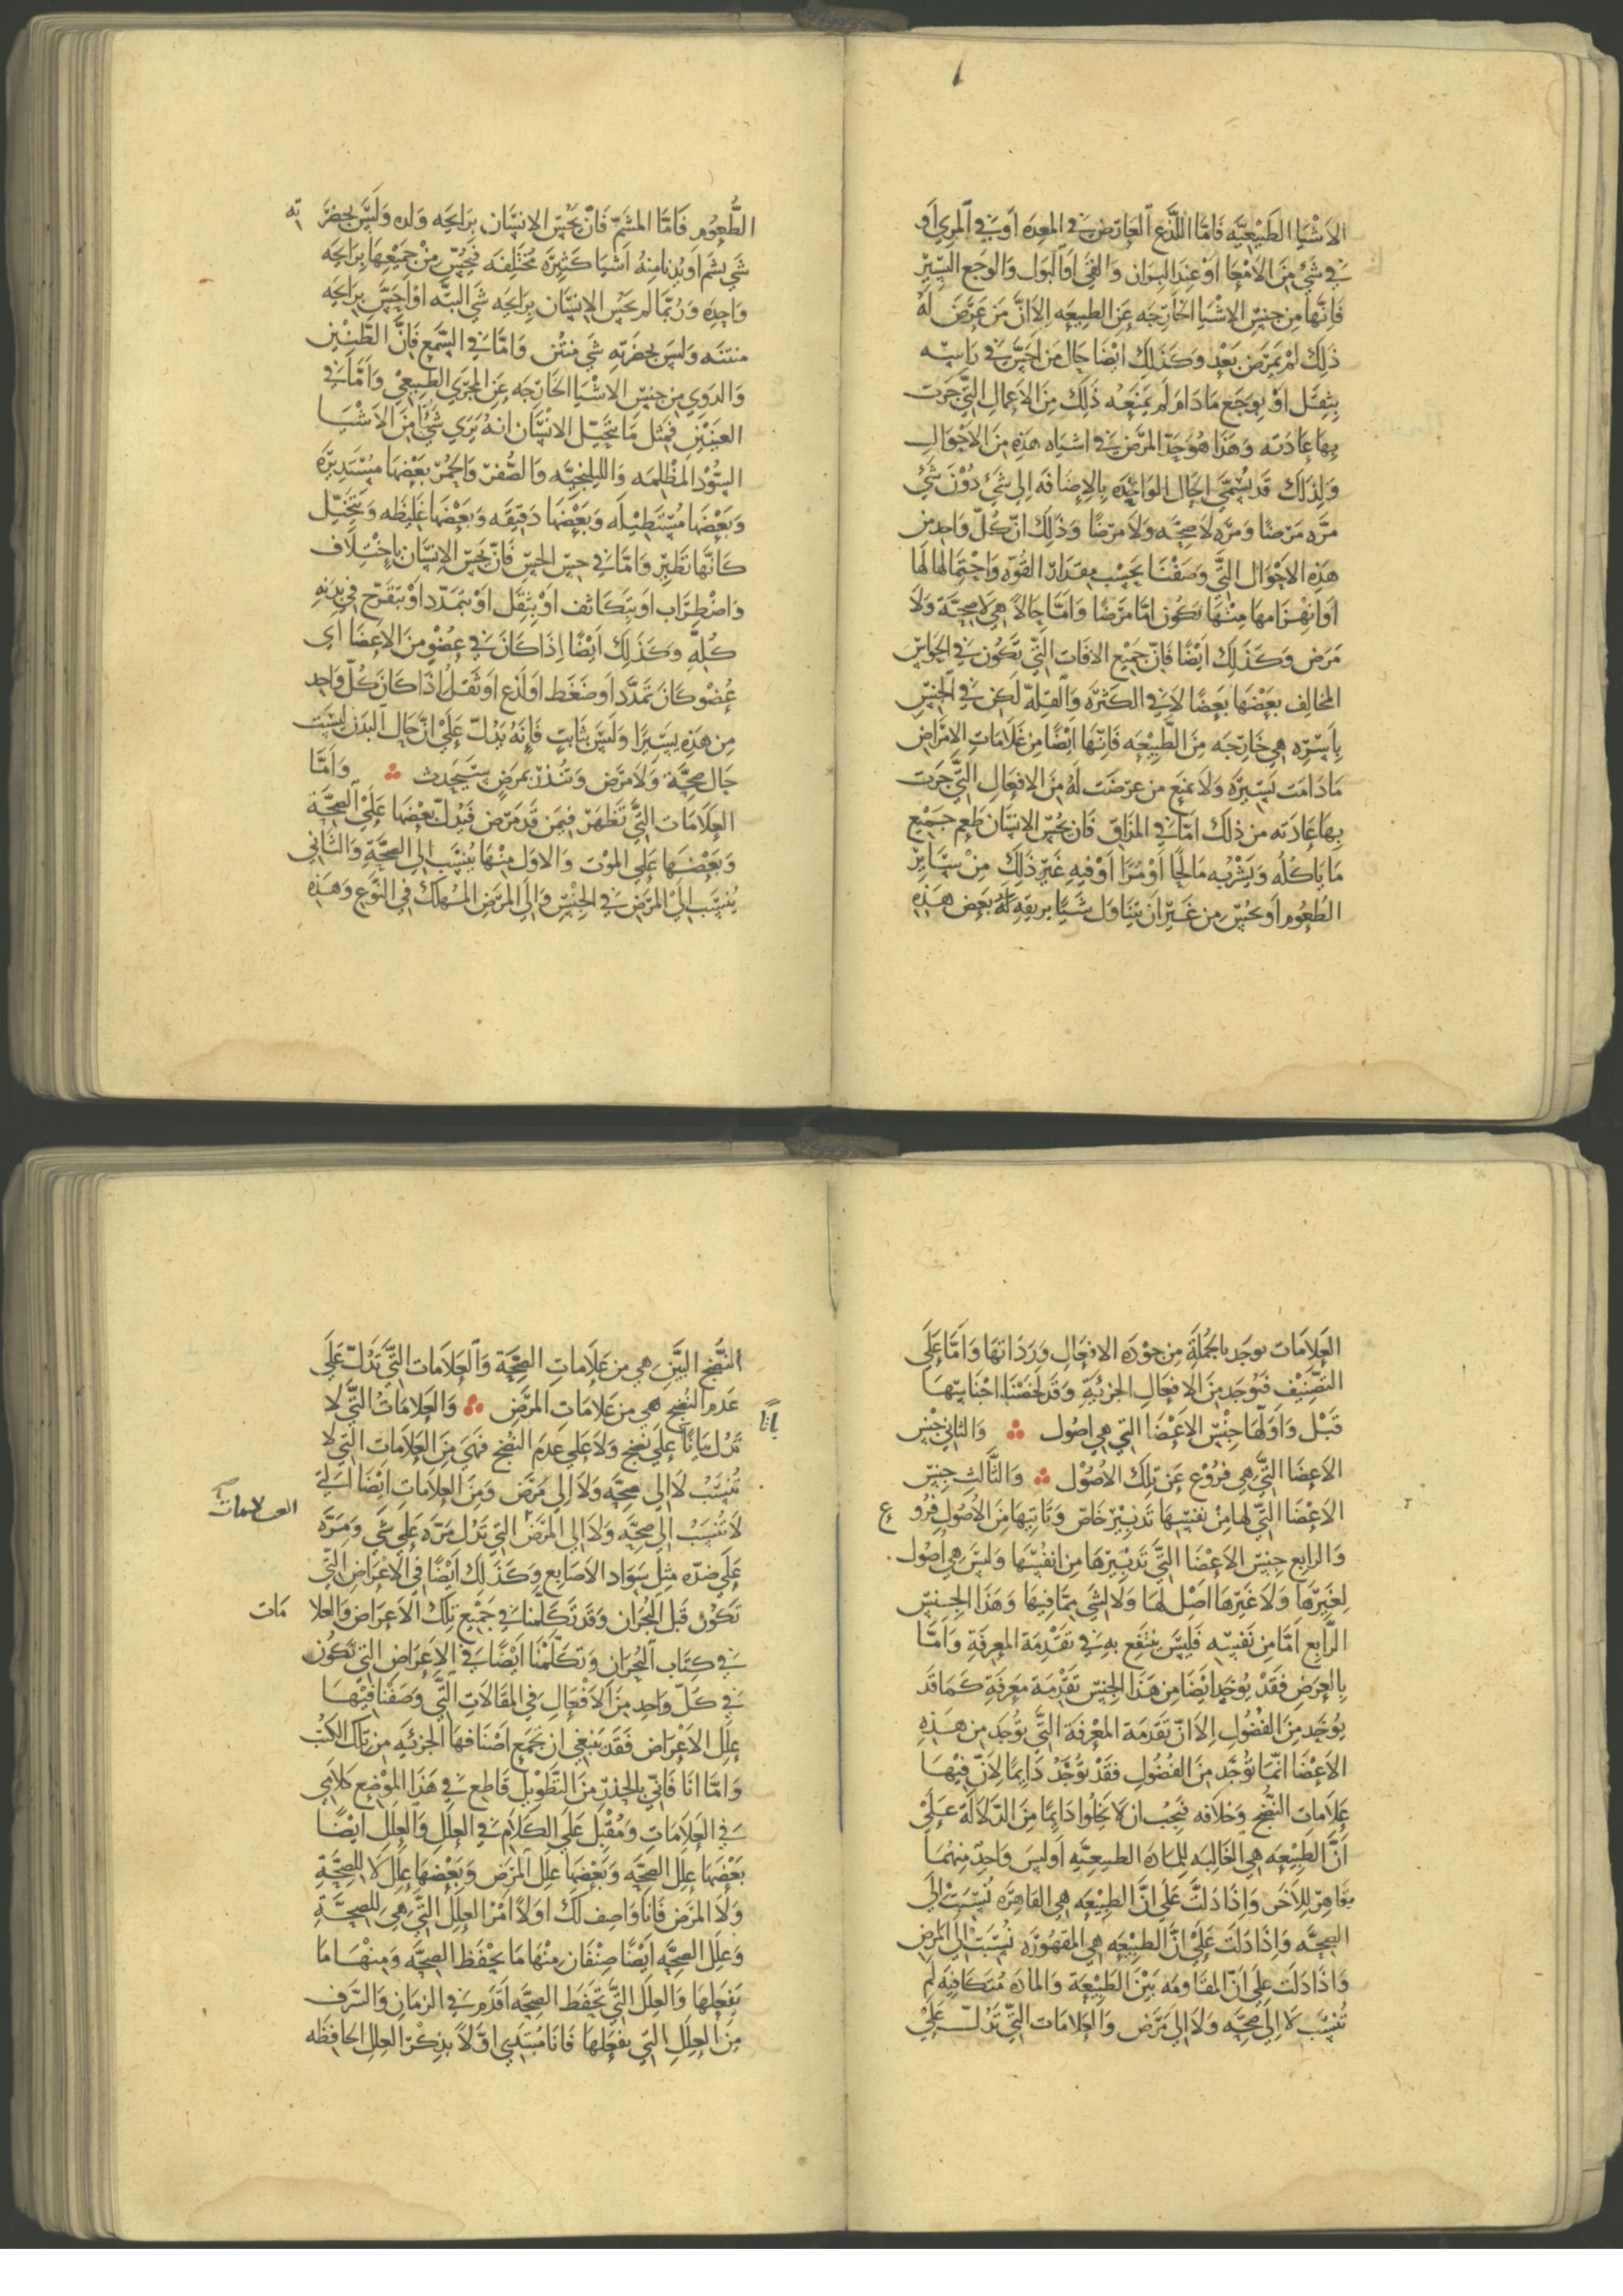 الاشيا الطبيعيه فاما اللذع العارض في المعده او في المري او
في شي من الامعا او عند البراز والقي او البول والوجع اليسير
فانها من جنس الاشيا الخارجه عن الطبيعه الا ان من عرض له
ذلك لم يمرض بعد وكذلك ايضا حال من احس في راسه
بثقل او بوجع ما دام لم يمنعه ذلك من الاعمال التي جرت
بها عادته وهذا هو حد المرض في اشباه هذه من الاحوال
ولذلك قد تسمي الحال الواحده بالاضافه الي شي دون شي
مره مرضا ومره لا صحه ولا مرضا وذلك ان كل واحد من
هذه الاحوال التي وصفنا بحسب مقدار القوه واحتمالها لها
او انهزامها منها تكون اما مرضا واما حالا هي لا صحة ولا
مرض وكذلك ايضا فان جميع الافات التي تكون في الحواس
المخالف بعضها بعضا لا في الكثره والقله لكن في الجنس
باسره هي خارجه من الطبيعه فانها ايضا من علامات الامراض
ما دامت يسيره ولا تمنع من عرضت له من الافعال التي جرت
بها عادته من ذلك اما في المذاق فان يحس الانسان طعم جميع
ما ياكله ويشربه مالحا او مرا او فيه غير ذلك من ساير
الطعوم او يحس من غير ان يتناول شيا بريقه له بعض هذه
الطعوم فاما المشم فان يحس الانسان برايحه ولده وليس بحضرته
شي يشم او يدنا منه اشيا كثيره مختلفه فيحس من جميعها برايحه
واحده وربما لم يحس الانسان برايحه شي البته او احس برايحه
منتنه وليس بحضرته شي منتن واما في السمع فان الطنين
والدوي من جنس الاشيا الخارجه عن المجري الطبيعي واما في
العينين فمثل ما يتخيل الانسان انه يري شيا من الاشيا
السود المظلمه واللبلنجيه والصفر والحمر بعضها مستديره
وبعضها مستطيله وبعضها دقيقه وبعضها غليظه ويتخيل
كانها تطير واما في حس الجس فان يحس الانسان باختلاف
واضطراب او بتكاثف او بثقل او بتمدد او بتقرح في بدنه
كله وكذلك ايضا اذا كان في عضو من الاعضا اي
عضو كان تمدد او ضغط او لذع او ثقل اذا كان كل واحد
من هذه يسيرا وليس بثابت فانه يدل علي ان حال البدن ليست
حال صحة ولا مرض وتنذر بمرض سيحدث ∴ واما
العلامات التي تظهر فيمن قد مرض فيدل بعضها علي الصحة
وبعضها علي الموت والاول منها ينسب الي الصحة والثاني
ينسب الي المرض في الجنس والي المرض المهلك في النوع وهذه
العلامات توجد بالجملة من جودة الافعال ورداتها واما علي
التصنيف فتوجد من الافعال الجزئية وقد لخصنا اجناسها
قبل واولها جنس الاعضا التي هي اصول ∴ والثاني جنس
الاعضا التي هي فروع عن تلك الاصول ∴ والثالث جنس
الاعضا التي لها من نفسها تدبير خاص وتاتيها من الاصول فروع
والرابع جنس الاعضا التي تدبيرها من انفسها وليس هي اصول
لغيرها ولا غيرها اصل لها ولا لشي مما فيها وهذا الجنس
الرابع اما من نفسه فليس ينتفع به في تقدمة المعرفة واما
بالعرض فقد يوجد ايضا من هذا الجنس تقدمة معرفة كما قد
يوجد من الفضول الا ان تقدمة المعرفة التي توجد من هذه
الاعضا انما توجد من الفضول فقد توجد دايما لان فيها
علامات النضج وخلافه فيجب ان لا يخلوا دايما من الدلالة علي
ان الطبيعه هي الغالبه للماده الطبيعيه او ليس واحد منهما
بقاهر للاخر واذا دلت علي ان الطبيعه هي القاهره نسبت الي
الصحه واذا دلت علي ان الطبيعه هي المقهوره نسبت الي المرض
واذا دلت علي ان المقاومه بين الطبيعة والماده متكافيه لم
تنسب لا الي صحه ولا الي مرض والعلامات التي تدل علي
النضج البين هي من علامات الصحة والعلامات التي تدل علي
عدم النضج هي من علامات المرض ∴ والعلامات التي لا
تدل بيانا علي نضج ولا علي عدم النضج فهي من العلامات التي لا
تنسب لا الي صحه ولا الي مرض ومن العلامات ايضا التي
العلامات
لا تنسب الي صحه ولا الي المرض التي تدل مره علي شي ومره
علي ضده مثل سواد الاصابع وكذلك ايضا في الاعراض التي
تكون قبل البحران وقد تكلمنا في جميع تلك الاعراض والعلامات
في كتاب البحران وتكلمنا ايضا في الاعراض التي تكون
في كل واحد من الافعال في المقالات التي وصفنا فيها
علل الاعراض فقد ينبغي ان تجمع اصنافها الجزئيه من تلك الكتب
واما انا فاني بالحذر من التطويل قاطع في هذا الموضع كلامي
في العلامات ومقبل علي الكلام في العلل والعلل ايضا
بعضها علل الصحه وبعضها علل المرض وبعضها علل لا للصحة
ولا المرض فانا واصف لك اولا امر العلل التي هي للصحة
وعلل الصحه ايضا صنفان منها ما يحفظ الصحه ومنها ما
يفعلها والعلل التي تحفظ الصحه اقدم في الزمان والشرف
من العلل التي تفعلها فانا مبتدي اولا بذكر العلل الحافظه